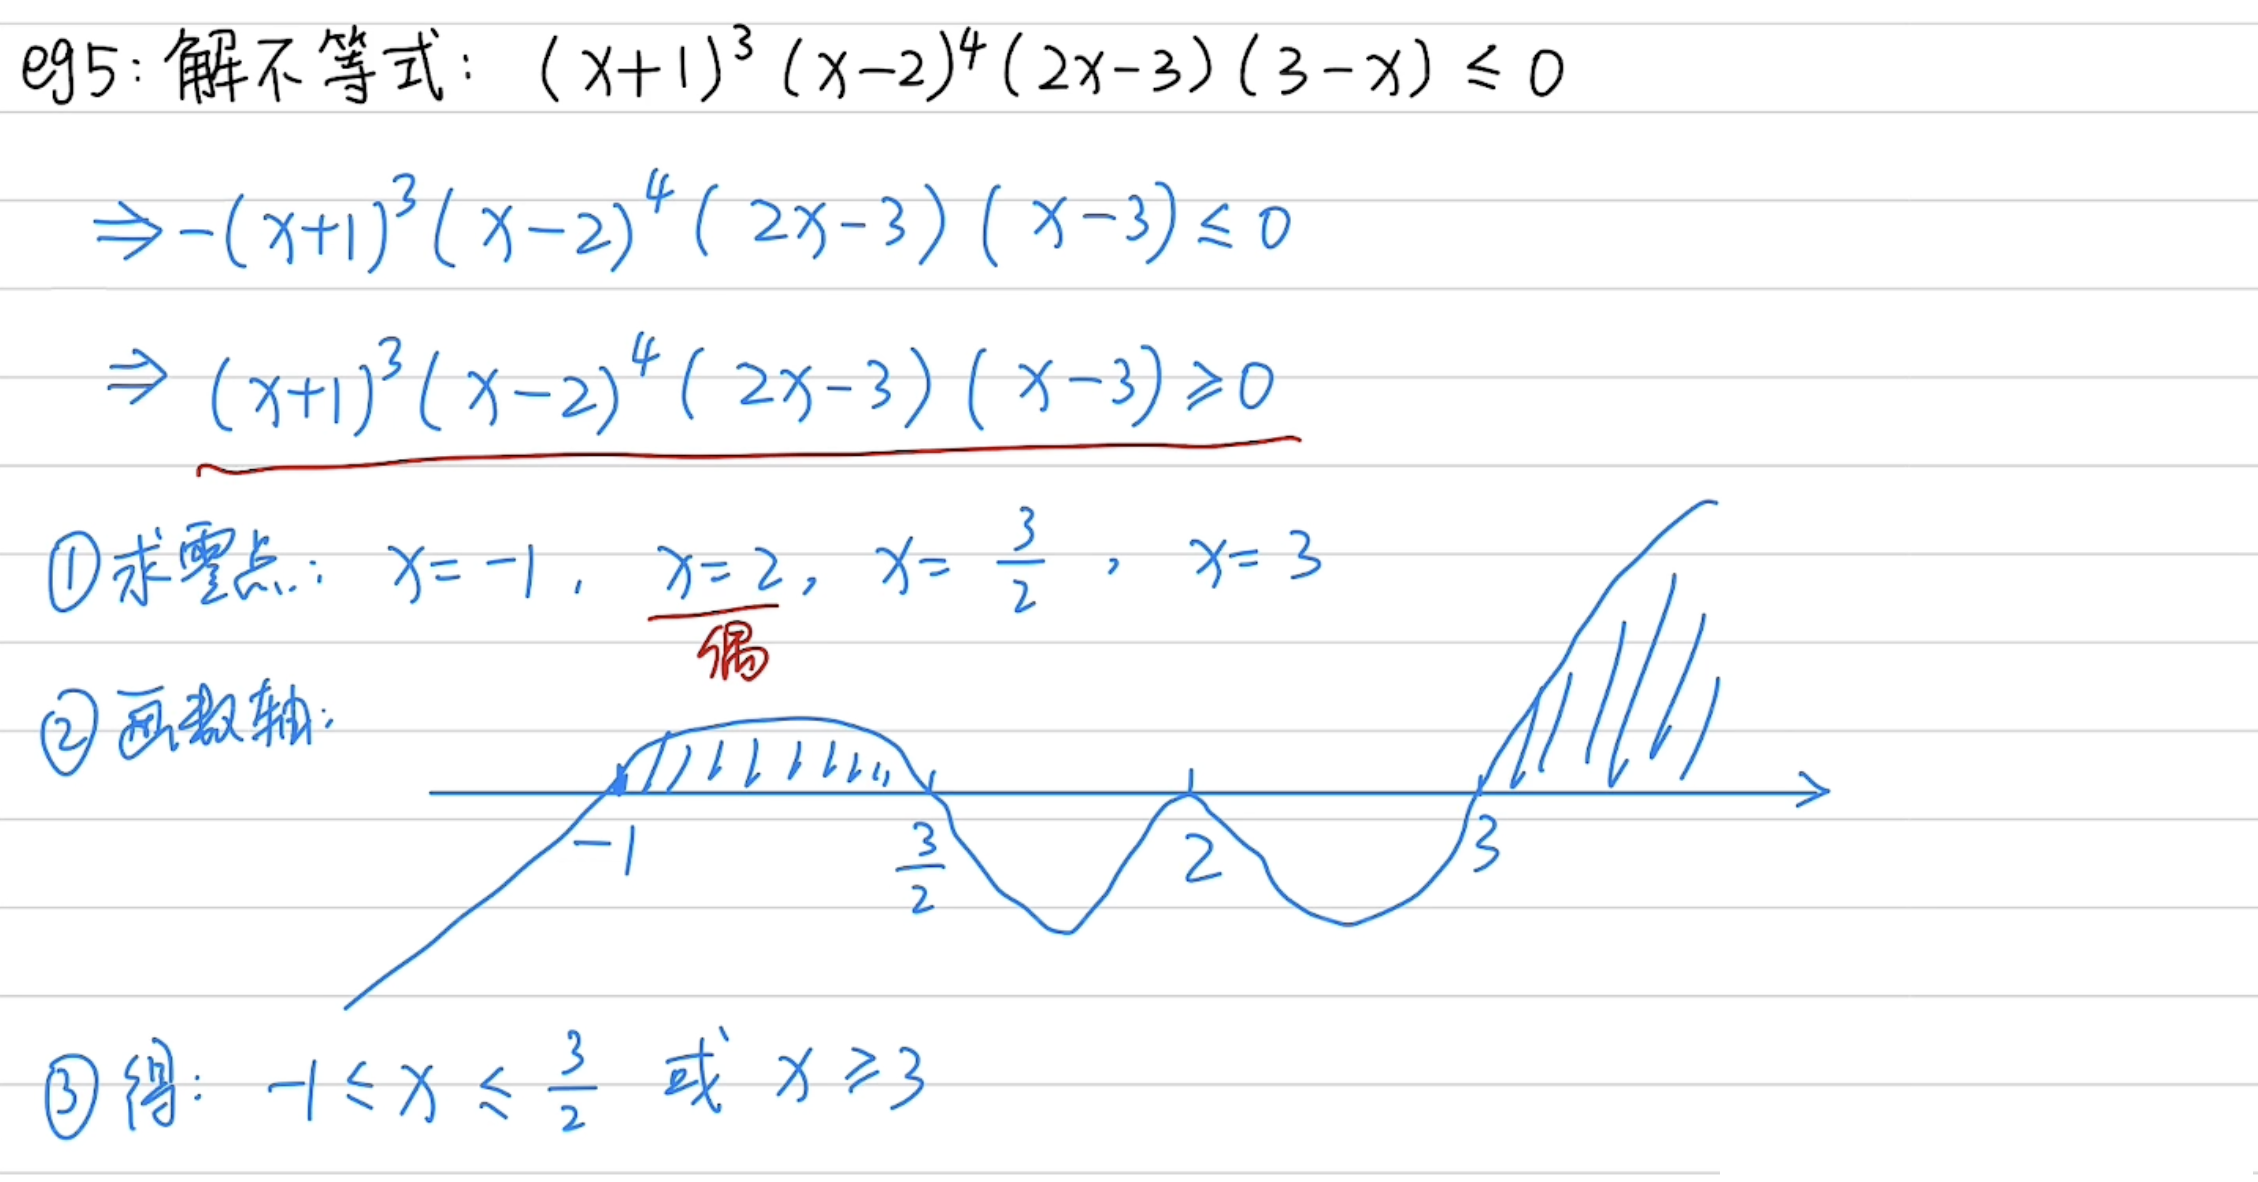 eg5: 解不等式: (x+1)³(x-2)⁴(2x-3)(3-x) ≤ 0
⇒ -(x+1)³(x-2)⁴(2x-3)(x-3) ≤ 0
⇒ (x+1)³(x-2)⁴(2x-3)(x-3) ≥ 0
①求零点: x=-1, x=2, x=3/2, x=3
偶
②画数轴:
-1 3/2 2 3
③得: -1 ≤ x ≤ 3/2 或 x ≥ 3